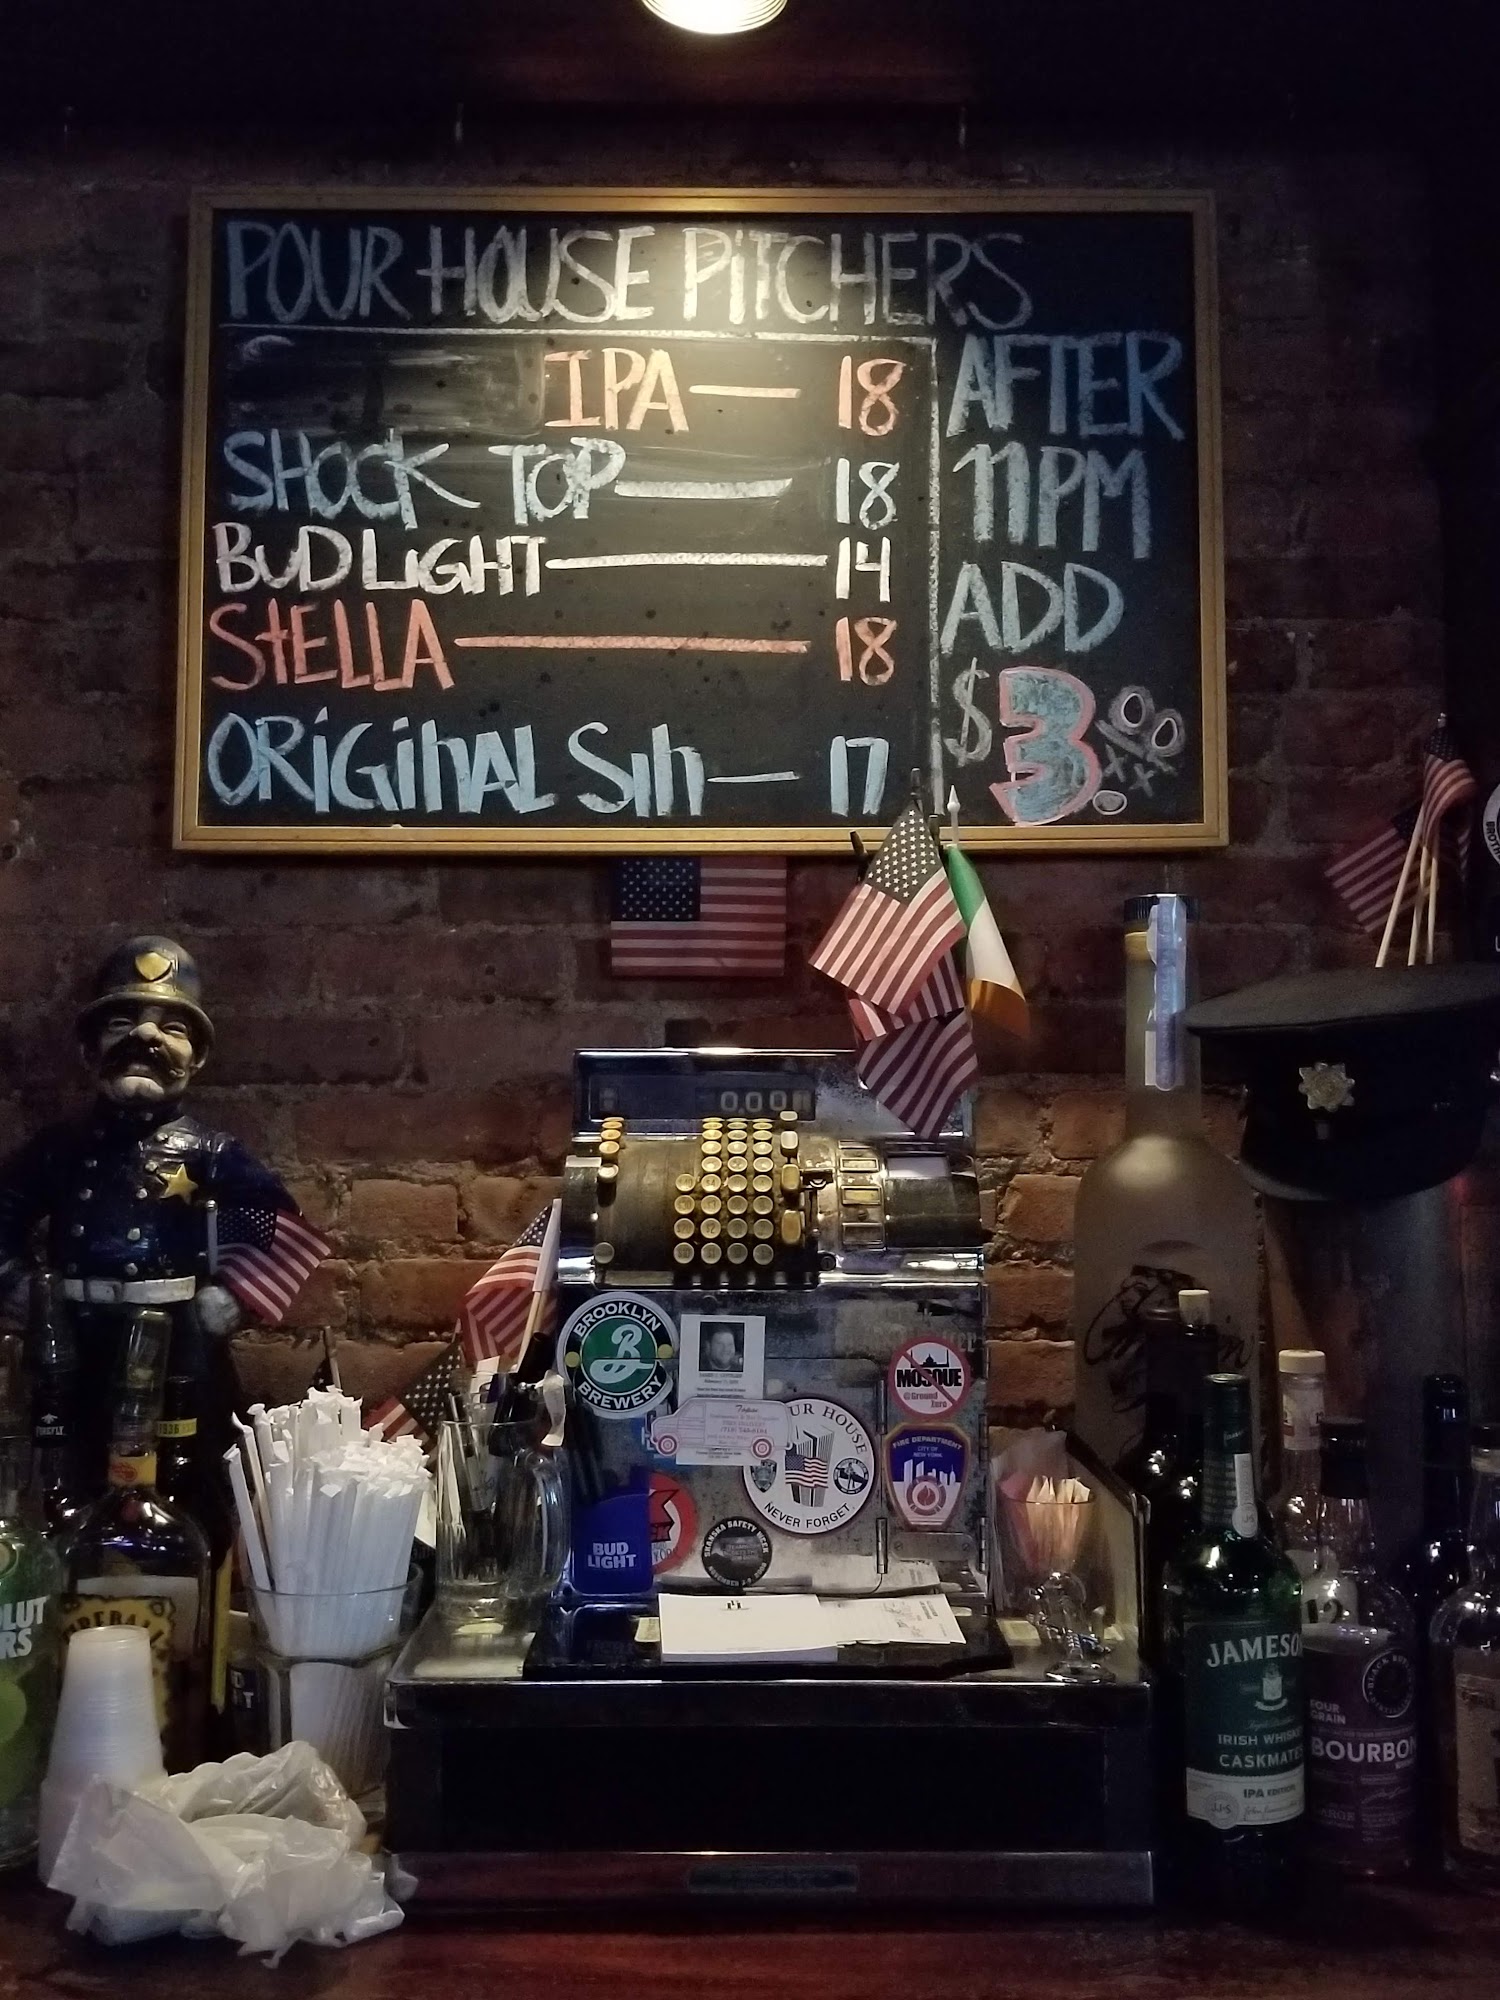 POUR HOUSE PiTCHERS
IPA — 18
SHOCK TOP — 18
BUD LiGHT — 14
StELLA — 18
ORiGinAL Sin — 17
AFTER
11PM
ADD
$3.00
0.00
BROOKLYN
B
BREWERY
MOSQUE
@Ground
Zero
FIRE DEPARTMENT
CITY OF
NEW YORK
POUR HOUSE
NEVER FORGET
BUD
LIGHT
SKANSKA SAFETY WEEK
FIREFLY
JAMESO
IRISH WHISK
CASKMATE
IPA EDITION
JJ&S
FOUR
GRAIN
BOURBON